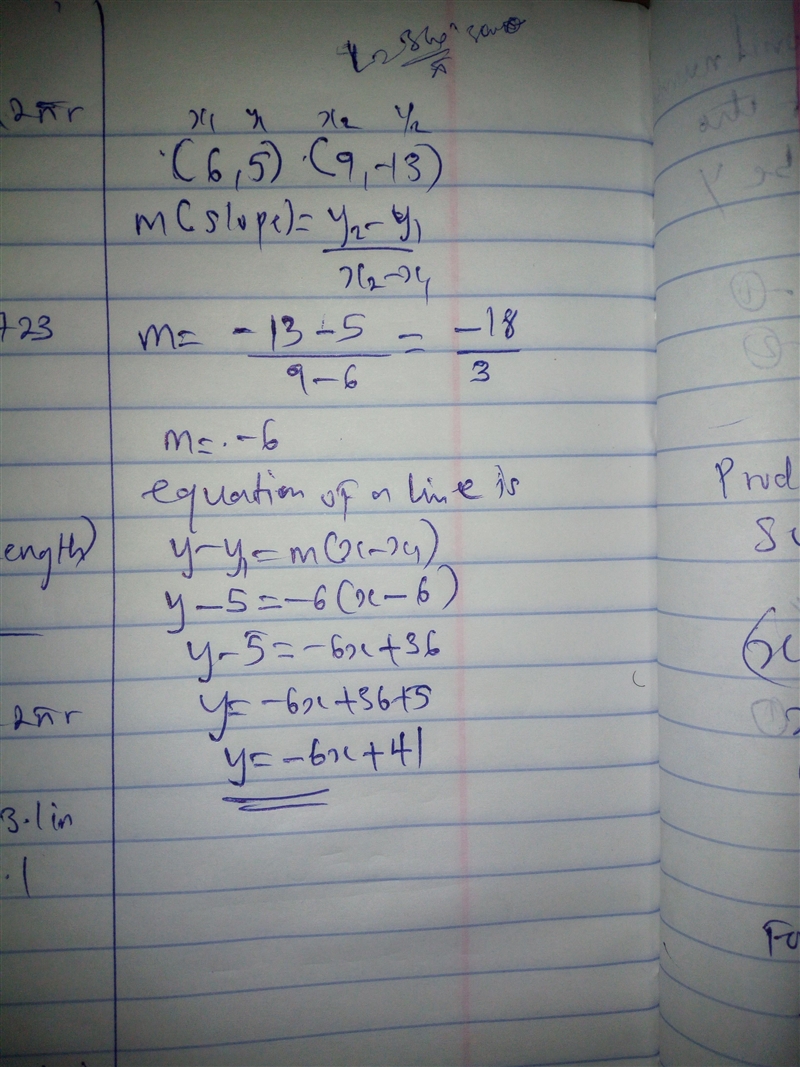 2πr
x₁ y₁ x₂ y₂
(6,5) (9,-13)
m(slope)= y₂-y₁
x₂-x₁
723
m= -13-5 = -18
9-6 3
m= -6
equation of a line is
y-y₁=m(x-x₁)
y-5=-6(x-6)
y-5=-6x+36
y=-6x+36+5
y=-6x+41
ength)
2πr
3.1in
.1
Prod
(x
Fo